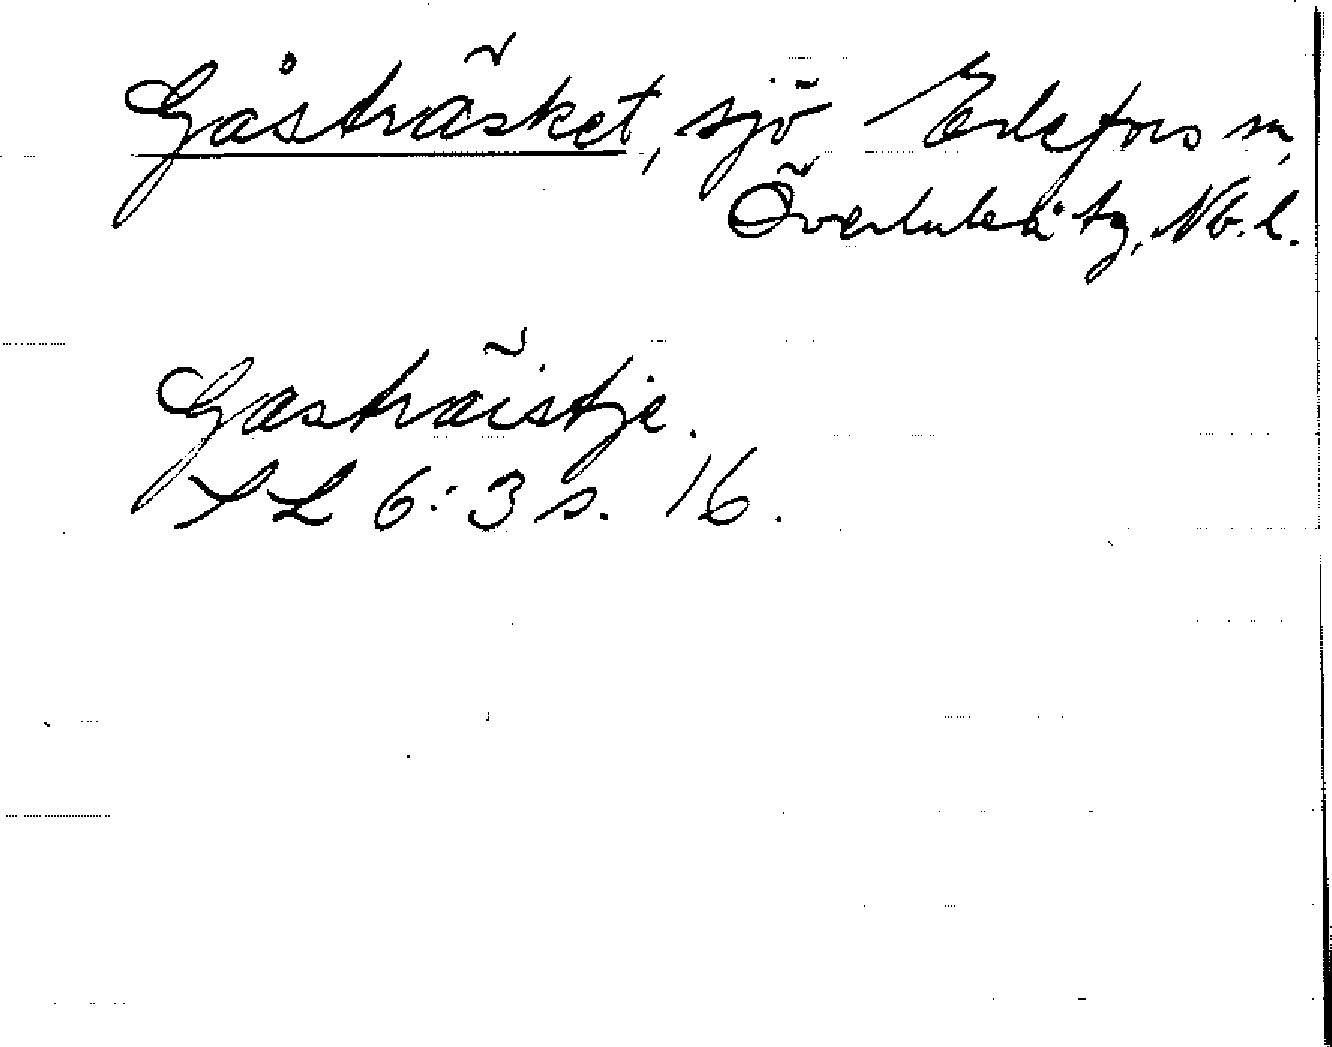 Gåsträsket, sjö Edefors sn,
Överluleå tg, Nb. l.
Gasträistje.
SL 6:3 s. 16.